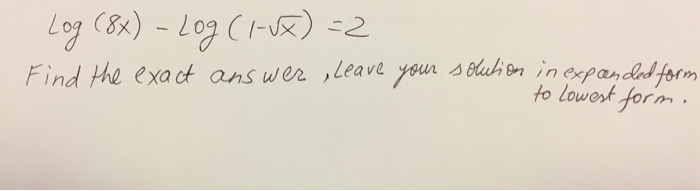 Log (8x) - Log (1-√x) = 2
Find the exact answer, Leave your solution in expanded form
to lowest form.